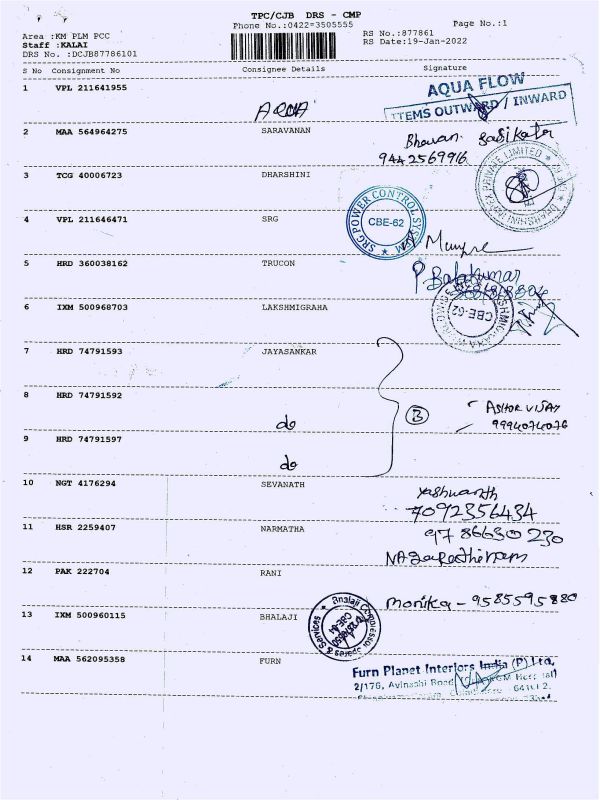 TPC/CJB DRS - CMP
Phone No.:0422=3505555
Page No.:1
Area :KM PLM PCC
RS No.:877861
Staff :KALAI
RS Date:19-Jan-2022
DRS No. :DCJB87786101
S No Consignment No Consignee Details Signature
1 VPL 211641955 AQUA
AQUA FLOW
ITEMS OUTWARD / INWARD
2 MAA 564964275 SARAVANAN
9442569916
3 TCG 40006723 DHARSHINI
4 VPL 211646471 SRG
SRG POWER CONTROL SYSTEM
CBE-62
5 HRD 360038162 TRUCON
P Balakumar
6 IXM 500968703 LAKSHMIGRAHA
CBE-62
7 HRD 74791593 JAYASANKAR
8 HRD 74791592 do
3
ASHOK VIJAY
9994074076
9 HRD 74791597 do
10 NGT 4176294 SEVANATH
Yashwanth
7092356434
11 HSR 2259407 NARMATHA
9786630230
12 PAK 222704 RANI
Monika - 9585595880
13 IXM 500960115 BHALAJI
14 MAA 562095358 FURN
Furn Planet Interiors India (P) Ltd.
2/176, Avinashi Road